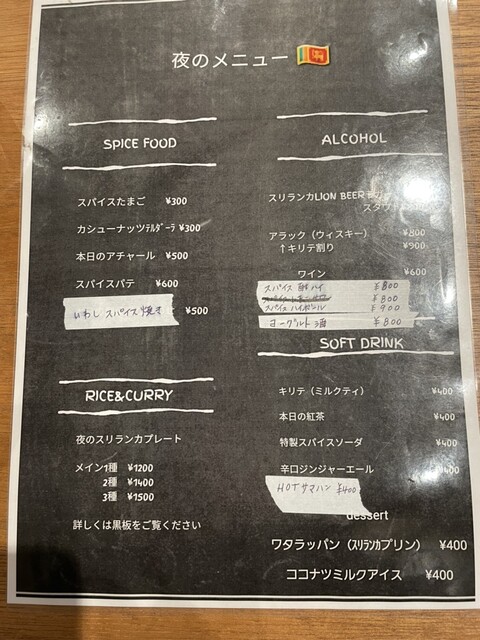 夜のメニュー
SPICE FOOD
スパイスたまご ¥300
カシューナッツﾃﾙﾀﾞｰﾗ ¥300
本日のアチャール ¥500
スパイスパテ ¥600
いわし スパイス焼き ¥500
RICE&CURRY
夜のスリランカプレート
メイン1種 ¥1200
2種 ¥1400
3種 ¥1500
詳しくは黒板をご覧ください
ALCOHOL
スリランカLION BEER
スタウト
アラック（ウィスキー） ¥800
↑キリテ割り ¥900
ワイン ¥600
スパイス ハイ ¥800
¥800
スパイス ハイボール ¥900
ヨーグルト酒 ¥800
SOFT DRINK
キリテ（ミルクティ） ¥400
本日の紅茶 ¥400
特製スパイスソーダ ¥400
辛口ジンジャーエール ¥400
HOTサマハン ¥400
dessert
ワタラッパン（ｽﾘﾗﾝｶプリン） ¥400
ココナツミルクアイス ¥400